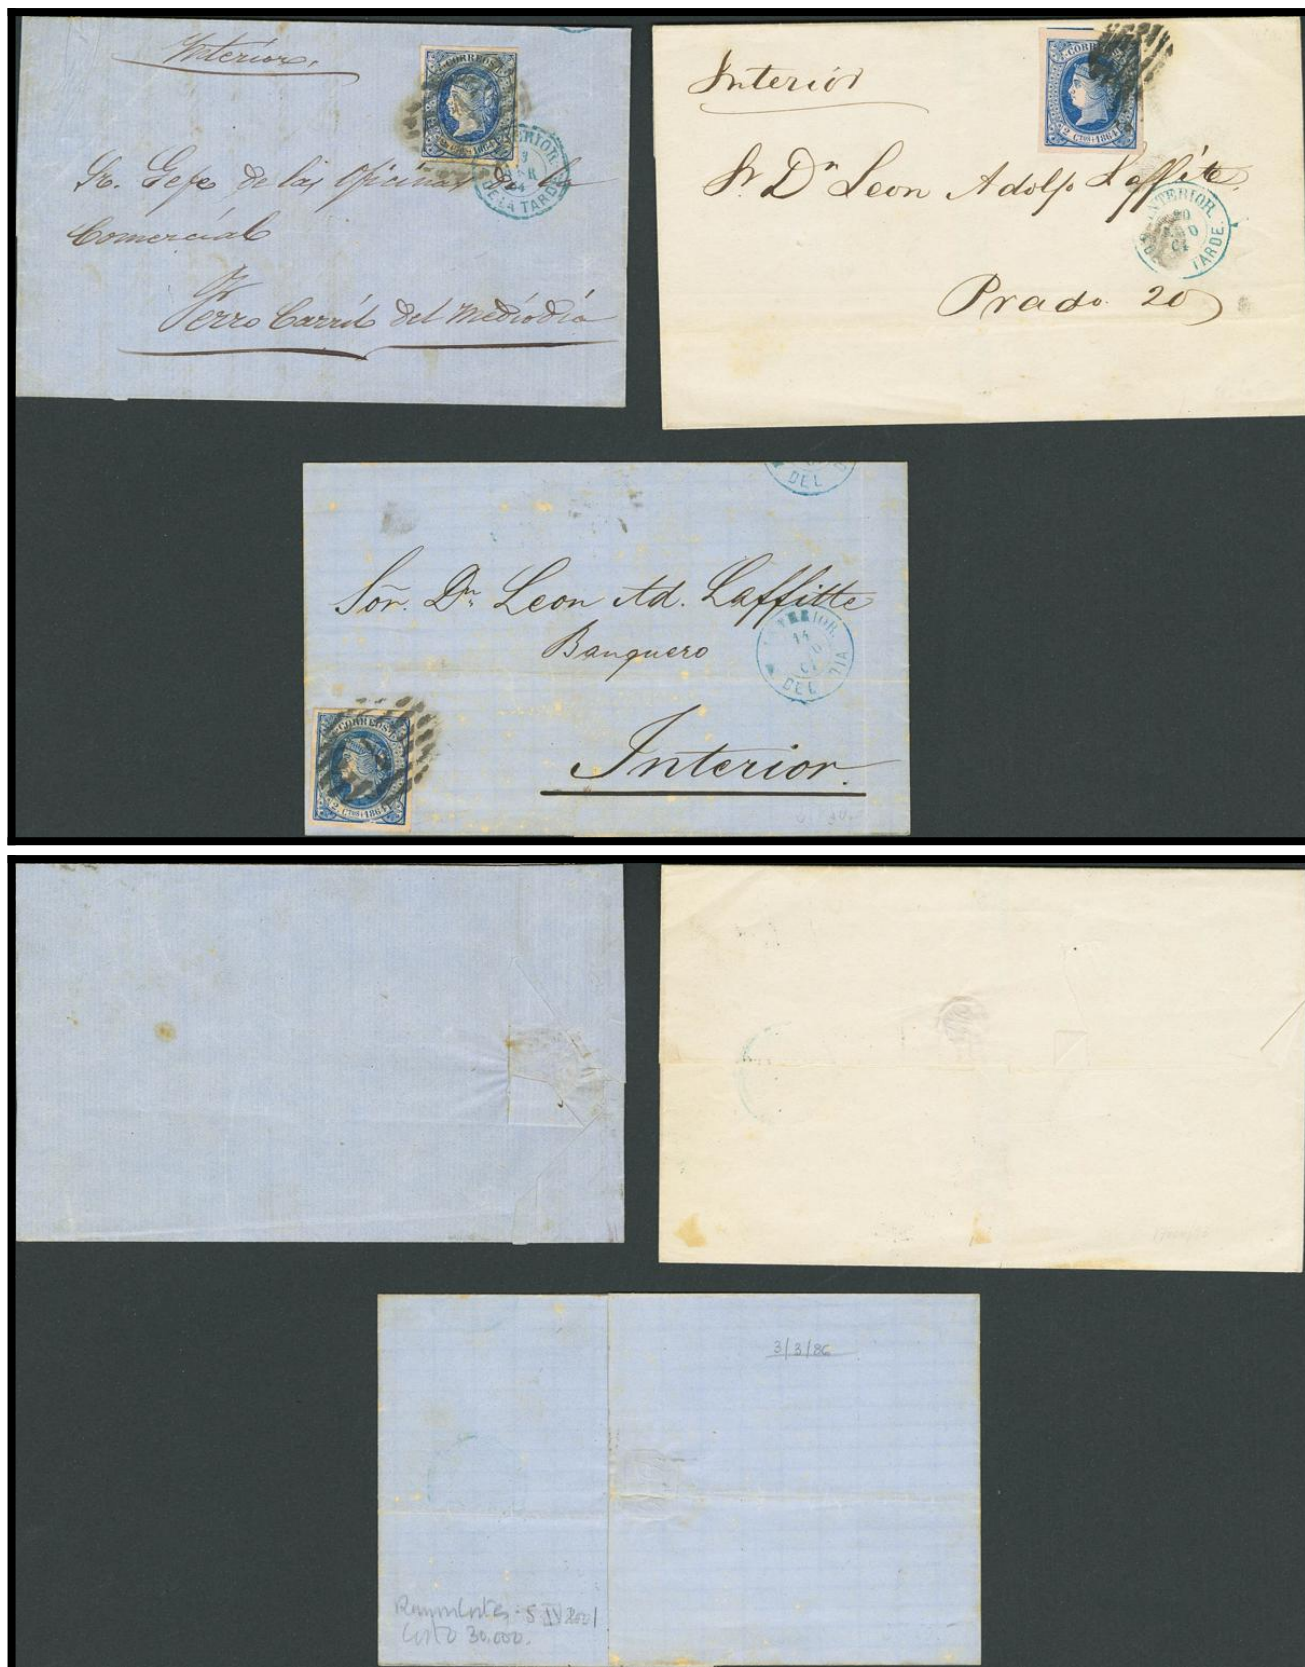 Interior.
CORREOS
2 CTOS 1864
INTERIOR.
DE LA TARDE
Sr. Gefe de las Oficinas de la
Comercial
Ferro Carril del Mediodia
Interior
CORREOS
2 CTOS 1864
Sr. Dn Leon Adolfo Laffite.
INTERIOR.
20
TARDE.
Prado 20
DEL
Sōn. Dn. Leon Ad. Laffitte
Banquero
INTERIOR.
14
DEL DIA
CORREOS
2 CTOS 1864
Interior.
3/3/86
5 IV 2001
Costo 30.000.